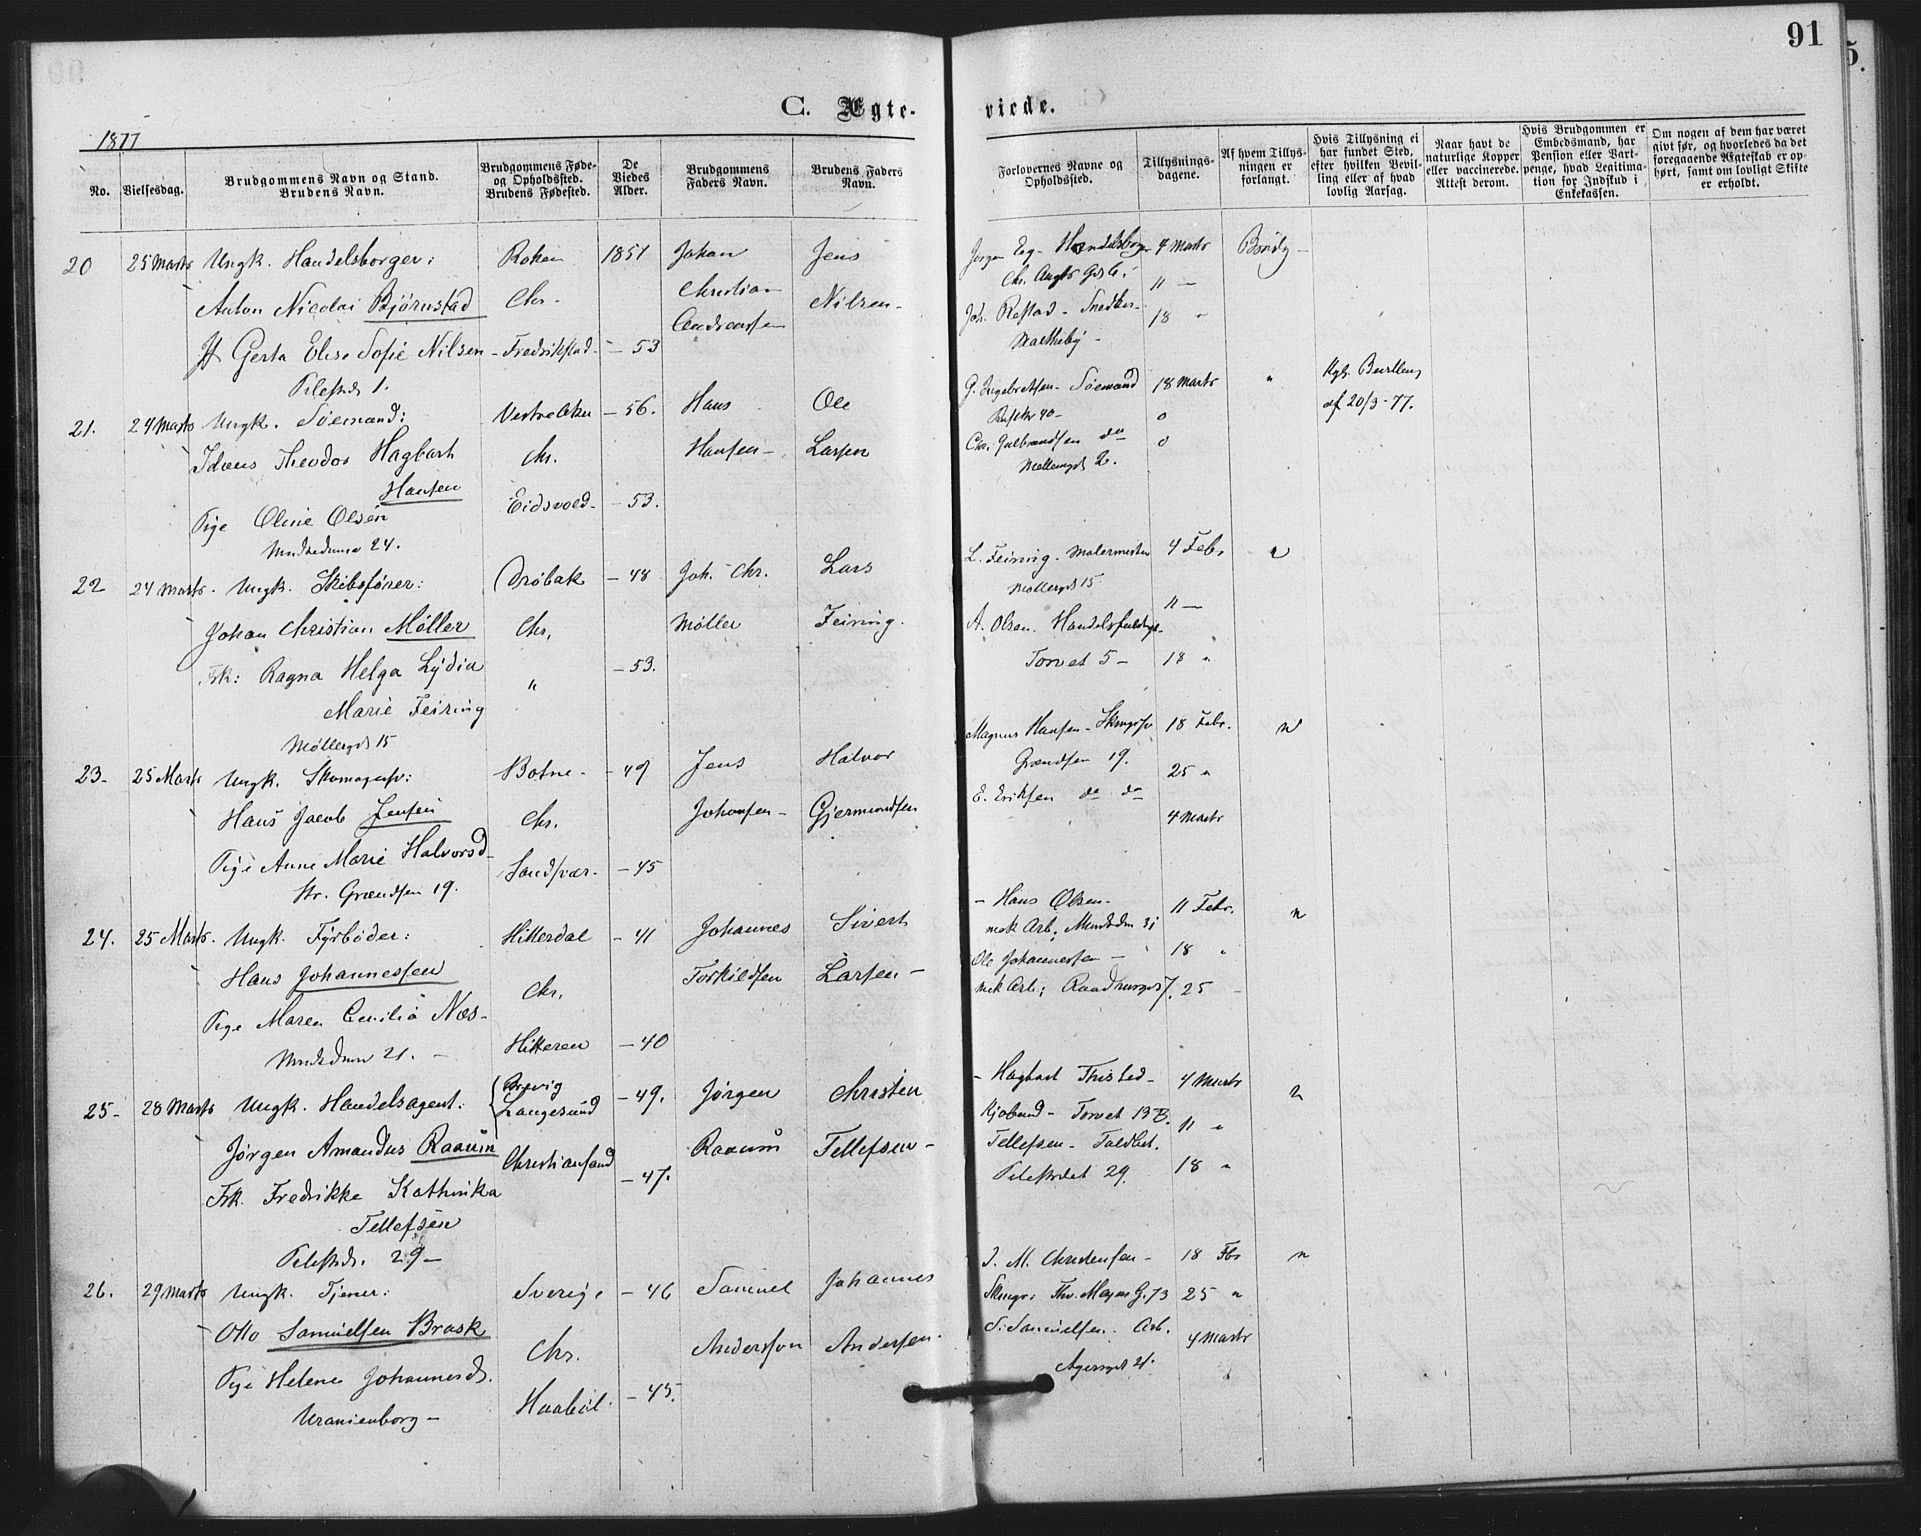 91
C. Ægte-
viede.
1877
No.
Vielsesdag.
Brudgommens Navn og Stand.
Brudens Navn.
Brudgommens Føde-
og Opholdssted.
Brudens Fødested.
De
Viedes
Alder.
Brudgommens
Faders Navn.
Brudens Faders
Navn.
Forlovernes Navne og
Opholdssted.
Tillysnings-
dagene.
Af hvem Tillys-
ningen er
forlangt.
Hvis Tillysning ei
har fundet Sted,
efter hvilken Bevil-
ling eller af hvad
lovlig Aarsag.
Naar havt de
naturlige Kopper
eller vaccinerede.
Attest derom.
Hvis Brudgommen er
Embedsmand, har
Pension eller Vart-
penge, hvad Legitima-
tion for Indskud i
Enkekassen.
Om nogen af dem har været
givt før, og hvorledes da det
foregaaende Ægteskab er op-
hørt, samt om lovligt Skifte
er erholdt.
20 25 Marts Ungk. Handelsborger: Røken 1851 Johan Jens
Anton Nicolai Bjørnstad Chr. Christian Nilsen
Andreassen
Gerta Elise Sofie Nilsen Fredrikstad - 53
Pilestrd. 1.
Jørgen Handelsborger 4 Marts
11 -
Joh. Snedker 18 "
21. 24 Marts Ungk. Sømand: Vestre Aker - 56. Hans Ole
Theodor Hagbart Chr. Hansen Larsen
Hansen
Pige Oline Olsen Eidsvold - 53.
24.
G. Ingebretsen - Sømand 18 Marts " Kgl. Bevilling
40 - 0 af 20/3 - 77.
Chr. Gulbrandsen do 0
Møllergd. 2.
22 24 Marts. Ungk. Skibsfører: Drøbak - 48 Joh. Chr. Lars
Johan Christian Møller Chr. Møller Feiring.
Frk: Ragna Helga Lydia " - 53.
Marie Feiring
Møllergd. 15
L. Feiring. Malermester 4 Febr "
Møllergd. 15
11 -
A. Olsen. Handelsfuldm.
Torvet 5 - 18 "
23. 25 Marts Ungk. Skomagersv: Botne - 49 Jens Halvor
Hans Jacob Jensen Chr. Johansen Gjermundsen
Pige Anne Marie Halvorsd. Sandsvær - 45
Str. Grændsen 19.
Magnus Hansen - 18 Febr. "
Grændsen 19. 25 "
E. Eriksen do do
4 Marts
24. 25 Marts. Ungk. Fyrbøder: Hitterdal - 41 Johannes Sivert
Hans Johannessen Chr. Torkildsen Larsen
Pige Maren Cecilia Næs Hitteren - 40
21.
Hans Olsen. 11 Febr. "
mek Arb;
Ole Johannessen - 18 "
mek Arb; Raadhusgd 7. 25 -
25 - 28 Marts Ungk. Handelsagent: Brevig - 49. Jørgen Christen
Langesund
Jørgen Amandus Raaum Christiansand Raaum Tellefsen
Frk. Fredrikke Kathinka - 47.
Tellefsen
Pilestrd. 29 -
Hagbart Thisted - 4 Marts "
Kjøbmd - Torvet 13 B. 11 "
Tellefsen - Toldbet.
Pilestrædet 29. 18 "
26. 29 Marts Ungk. Tjener: Sverige - 46 Samuel Johannes
Otto Samuelsen Brask Chr. Andersson Andersen
Pige Helene Johannesd. Haabøl - 45.
Uranienborg -
J. M. Christensen - 18 Fbr "
Thv. Meyers G. 73 25 "
S. Samuelsen. Arb. 4 Marts
Agersgd 21.